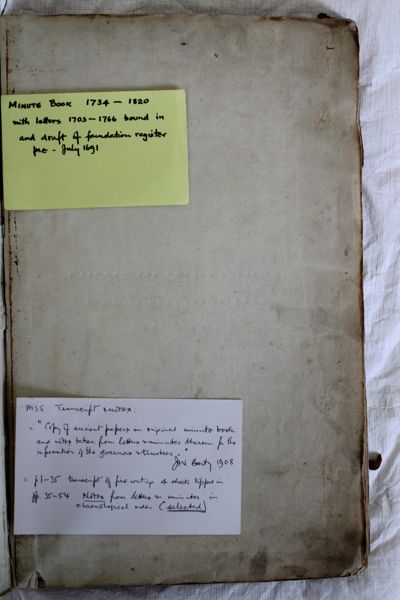 MINUTE BOOK 1734 – 1820
with letters 1703–1766 bound in
and draft of foundation register
pre - July 1691
MSS Transcript notes:
= "Copy of ancient papers in original minute book
and notes taken from letters & minutes therein for the
information of the governors & trustees."
1908
= p1–35 transcript of five writing & sheets tipped in
pp. 35–54 Notes from letters & minutes in
chronological order (selected)